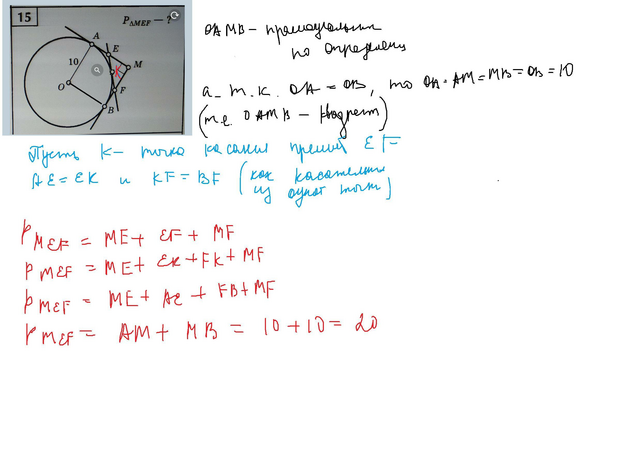 15
P△MEF — ?
A
E
10
K
M
O
F
B
OAMB – прямоугольник
по определению
а т.к. OA = OB, то OA = AM = MB = OB = 10
(т.е. OAMB – квадрат)
Пусть K – точка касания прямой EF
AE = EK и KF = BF (как касательные
из одной точки)
P MEF = ME + EF + MF
P MEF = ME + EK + FK + MF
P MEF = ME + AE + FB + MF
P MEF = AM + MB = 10 + 10 = 20